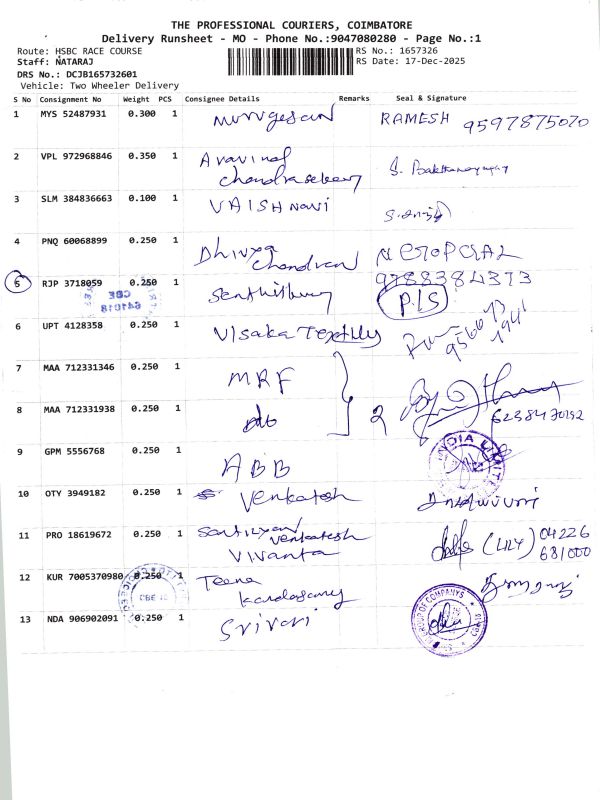 THE PROFESSIONAL COURIERS, COIMBATORE
Delivery Runsheet - MO - Phone No.:9047080280 - Page No.:1
Route: HSBC RACE COURSE
RS No.: 1657326
Staff: NATARAJ
RS Date: 17-Dec-2025
DRS No.: DCJB165732601
Vehicle: Two Wheeler Delivery
S No Consignment No Weight PCS Consignee Details Remarks Seal & Signature
1 MYS 52487931 0.300 1 Murugesan RAMESH 9597875070
2 VPL 972968846 0.350 1 Aravind
Chandrasekary S.
3 SLM 384836663 0.100 1 VAISHNavi
4 PNQ 60068899 0.250 1 Dhivya
Chandran
9788384373
5 RJP 3718059 0.250 1 P.I.S
CBE
641018
6 UPT 4128358 0.250 1 Visaka Textiles
7 MAA 712331346 0.250 1 MRF
8 MAA 712331938 0.250 1 do 2
6238470192
9 GPM 5556768 0.250 1 ABB
INDIA LIMITED
10 OTY 3949182 0.250 1 Venkatesh
11 PRO 18619672 0.250 1 Venkatesh
Vivanta (LILY) 04226
681000
12 KUR 7005370980 0.250 1 Teena
CBE
13 NDA 906902091 0.250 1 Srivari
GROUP OF COMPANYS